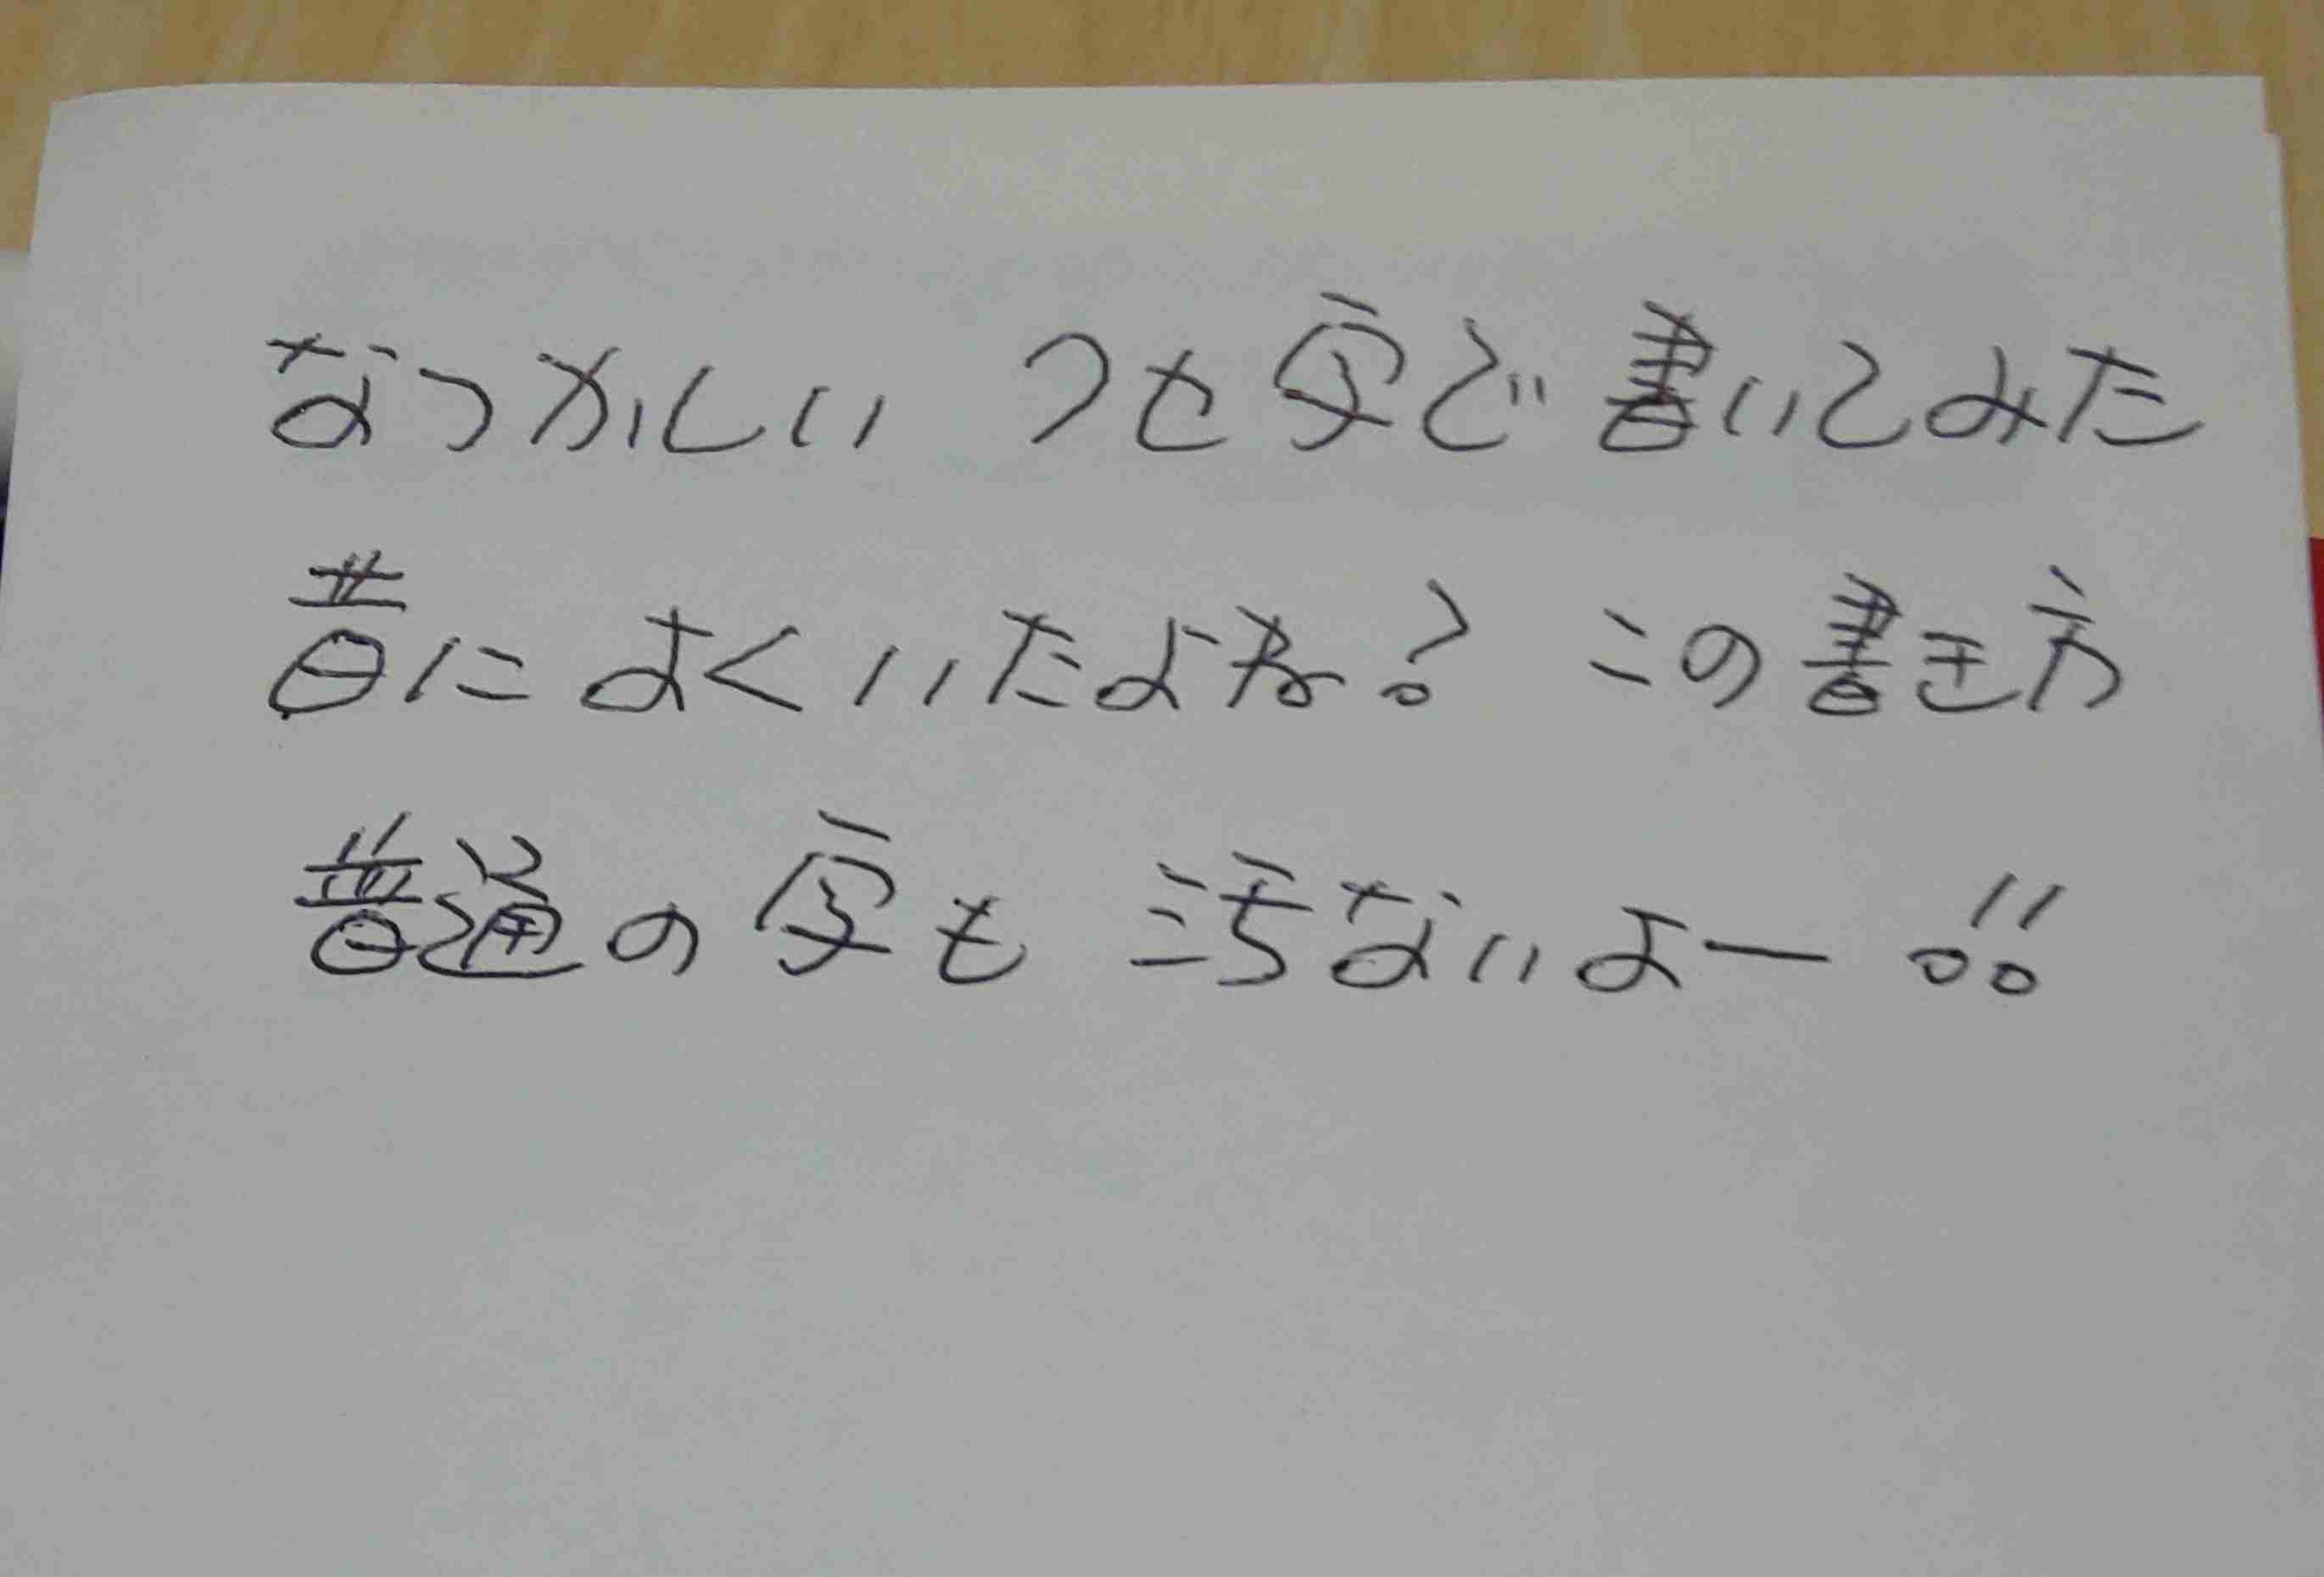 なつかしい つせ字で書いてみた
昔によくいたよね? この書き方
普通の字も汚ないよー!!